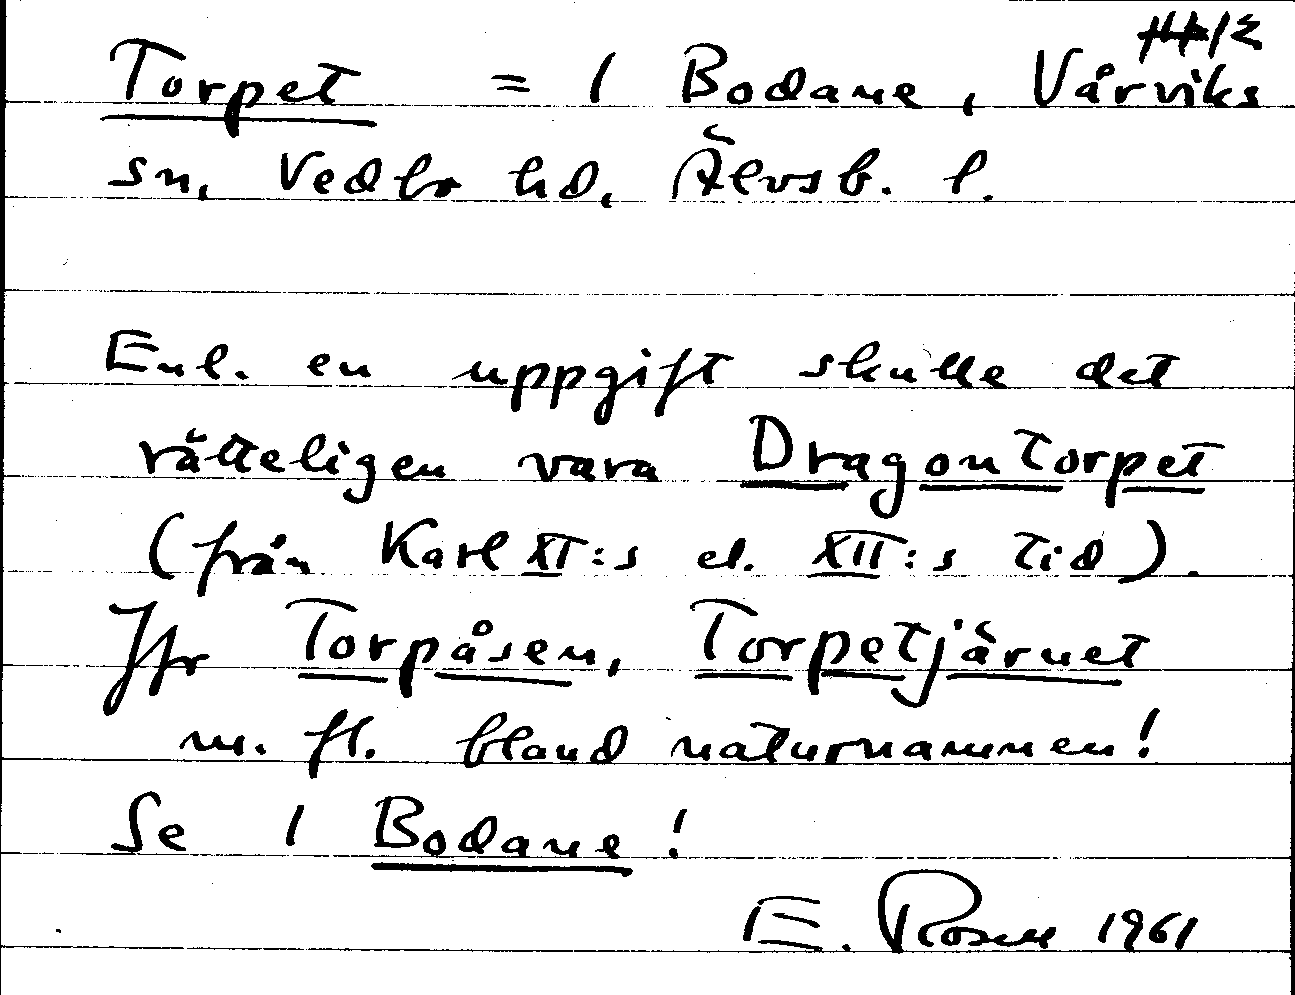 Torpet = 1 Bodane, Vårviks
sn, Vedbo hd, Älvsb. l.
Enl. en uppgift skulle det
rätteligen vara Dragontorpet
(från Karl XI:s el. XII:s tid).
Jfr Torpåsen, Torpetjärnet
m. fl. bland naturnamnen!
Se 1 Bodane!
E. Rosell 1961